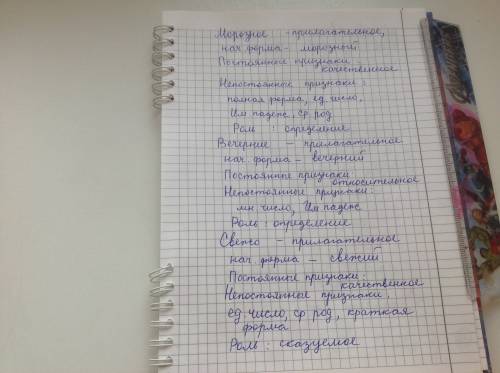 Морозное - прилагательное,
нач форма - морозный
Постоянные признаки
качественное
Непостоянные признаки:
полная форма, ед. число,
Им падеж, ср род
Роль : определение
Вечерние - прилагательное
нач форма - вечерний
Постоянные признаки
относительное
Непостоянные признаки:
мн. число, Им падеж
Роль : определение
Свежо - прилагательное
нач. форма - свежий
Постоянные признаки:
качественное
Непостоянные признаки:
ед число, ср род, краткая
форма
Роль : сказуемое